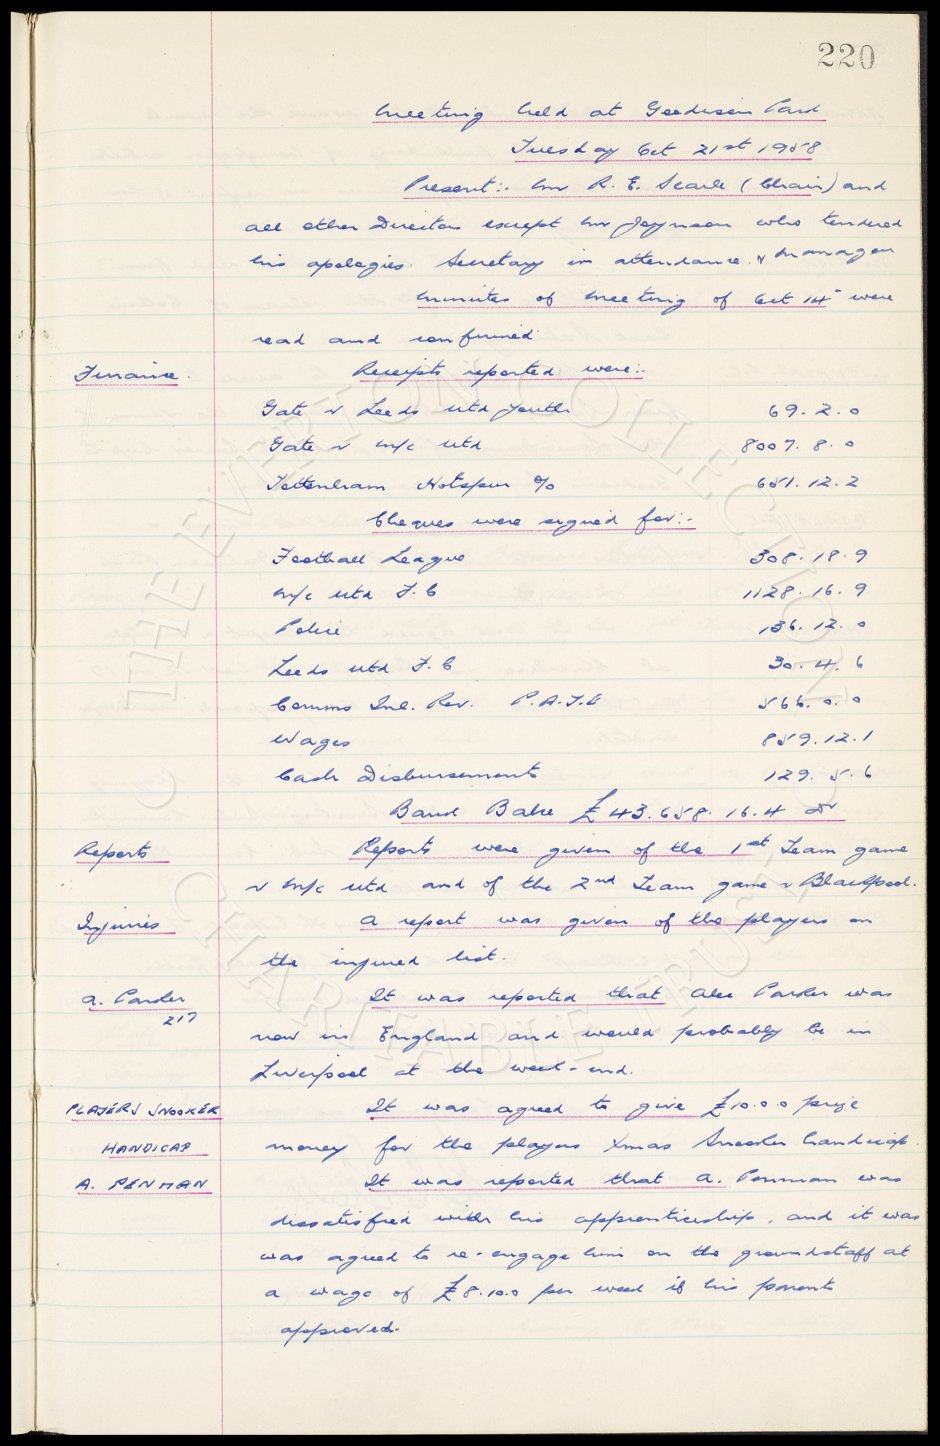 220
Meeting held at Goodison Park
Tuesday Oct 21st 1958
Present:- Mr R. E. Searle (Chair) and
all other Directors except Mr Joynson who tendered
his apologies. Secretary in attendance. & Manager
Minutes of meeting of Oct 14th were
read and confirmed
Finance. Receipts reported were:-
Gate v Leeds Utd Youth 69. 2. 0
Gate v M/c Utd 8007. 8. 0
Tottenham Hotspur % 651. 12. 2
Cheques were signed for:-
Football League 308. 18. 9
M/c Utd F.C 1128. 16. 9
Police 136. 12. 0
Leeds Utd F.C 30. 4. 6
Comms Inl. Rev. P.A.Y.E 566. 0. 0
Wages 859. 12. 1
Cash Disbursements 129. 5. 6
Bank Balce £43.658. 16. 4 Dr
Reports Reports were given of the 1st Team game
v M/c Utd and of the 2nd Team game v Blackpool.
Injuries A report was given of the players on
the injured list.
A. Parker It was reported that Alex Parker was
217
now in England and would probably be in
Liverpool at the week-end.
PLAYERS SNOOKER It was agreed to give £10.0.0 prize
HANDICAP money for the players Xmas Snooker handicap.
A. PENMAN It was reported that A. Penman was
dissatisfied with his apprenticeship, and it was
was agreed to re-engage him on the groundstaff at
a wage of £8.10.0 per week if his parents
approved.
THE EVERTON COLLECTION
© CHARITABLE TRUST